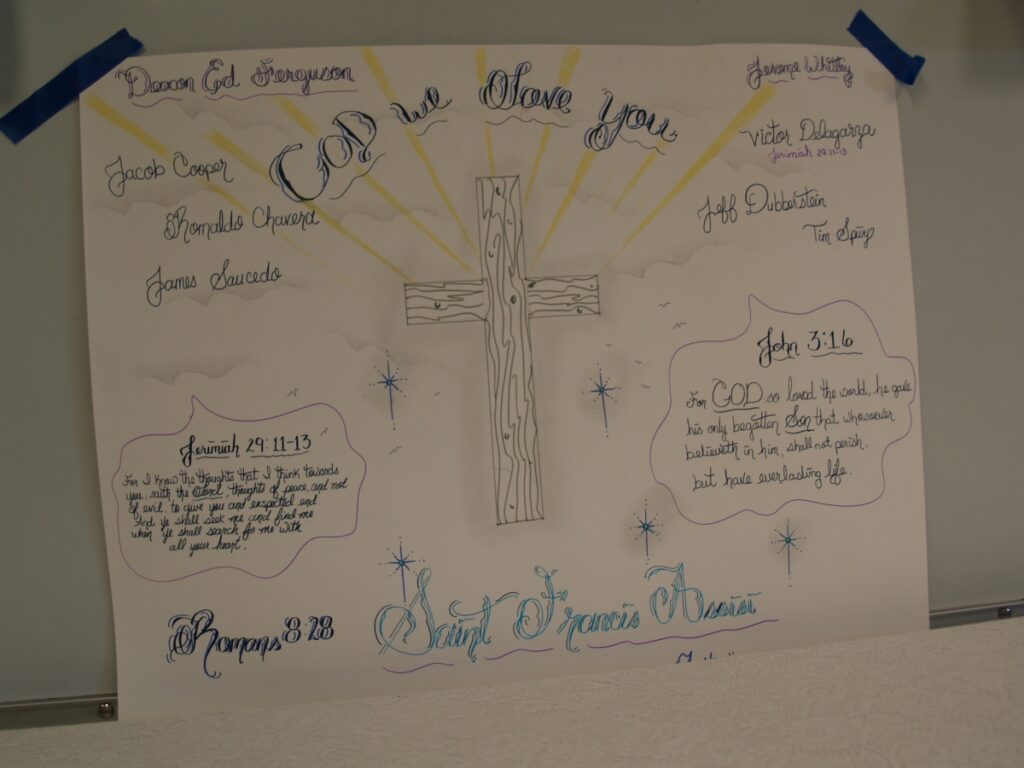 Deacon Ed Ferguson
GOD we Love You
Jerome
Jacob Cooper
Victor Delagarza
Jerimiah 29:11-13
Ronaldo Chavera
Jeff Dubberstein
Tim
James Saucedo
John 3:16
For GOD so loved the world, he gave
his only begotten Son that whosoever
believeth in him, shall not perish.
but have everlasting life.
Jerimiah 29:11-13
For I know the thoughts that I think towards
you, saith the Lord, thoughts of peace, and not
of evil, to give you and exspected end
And ye shall seek me and find me
when ye shall search for me with
all your heart.
Romans 8:28
Saint Francis Assisi